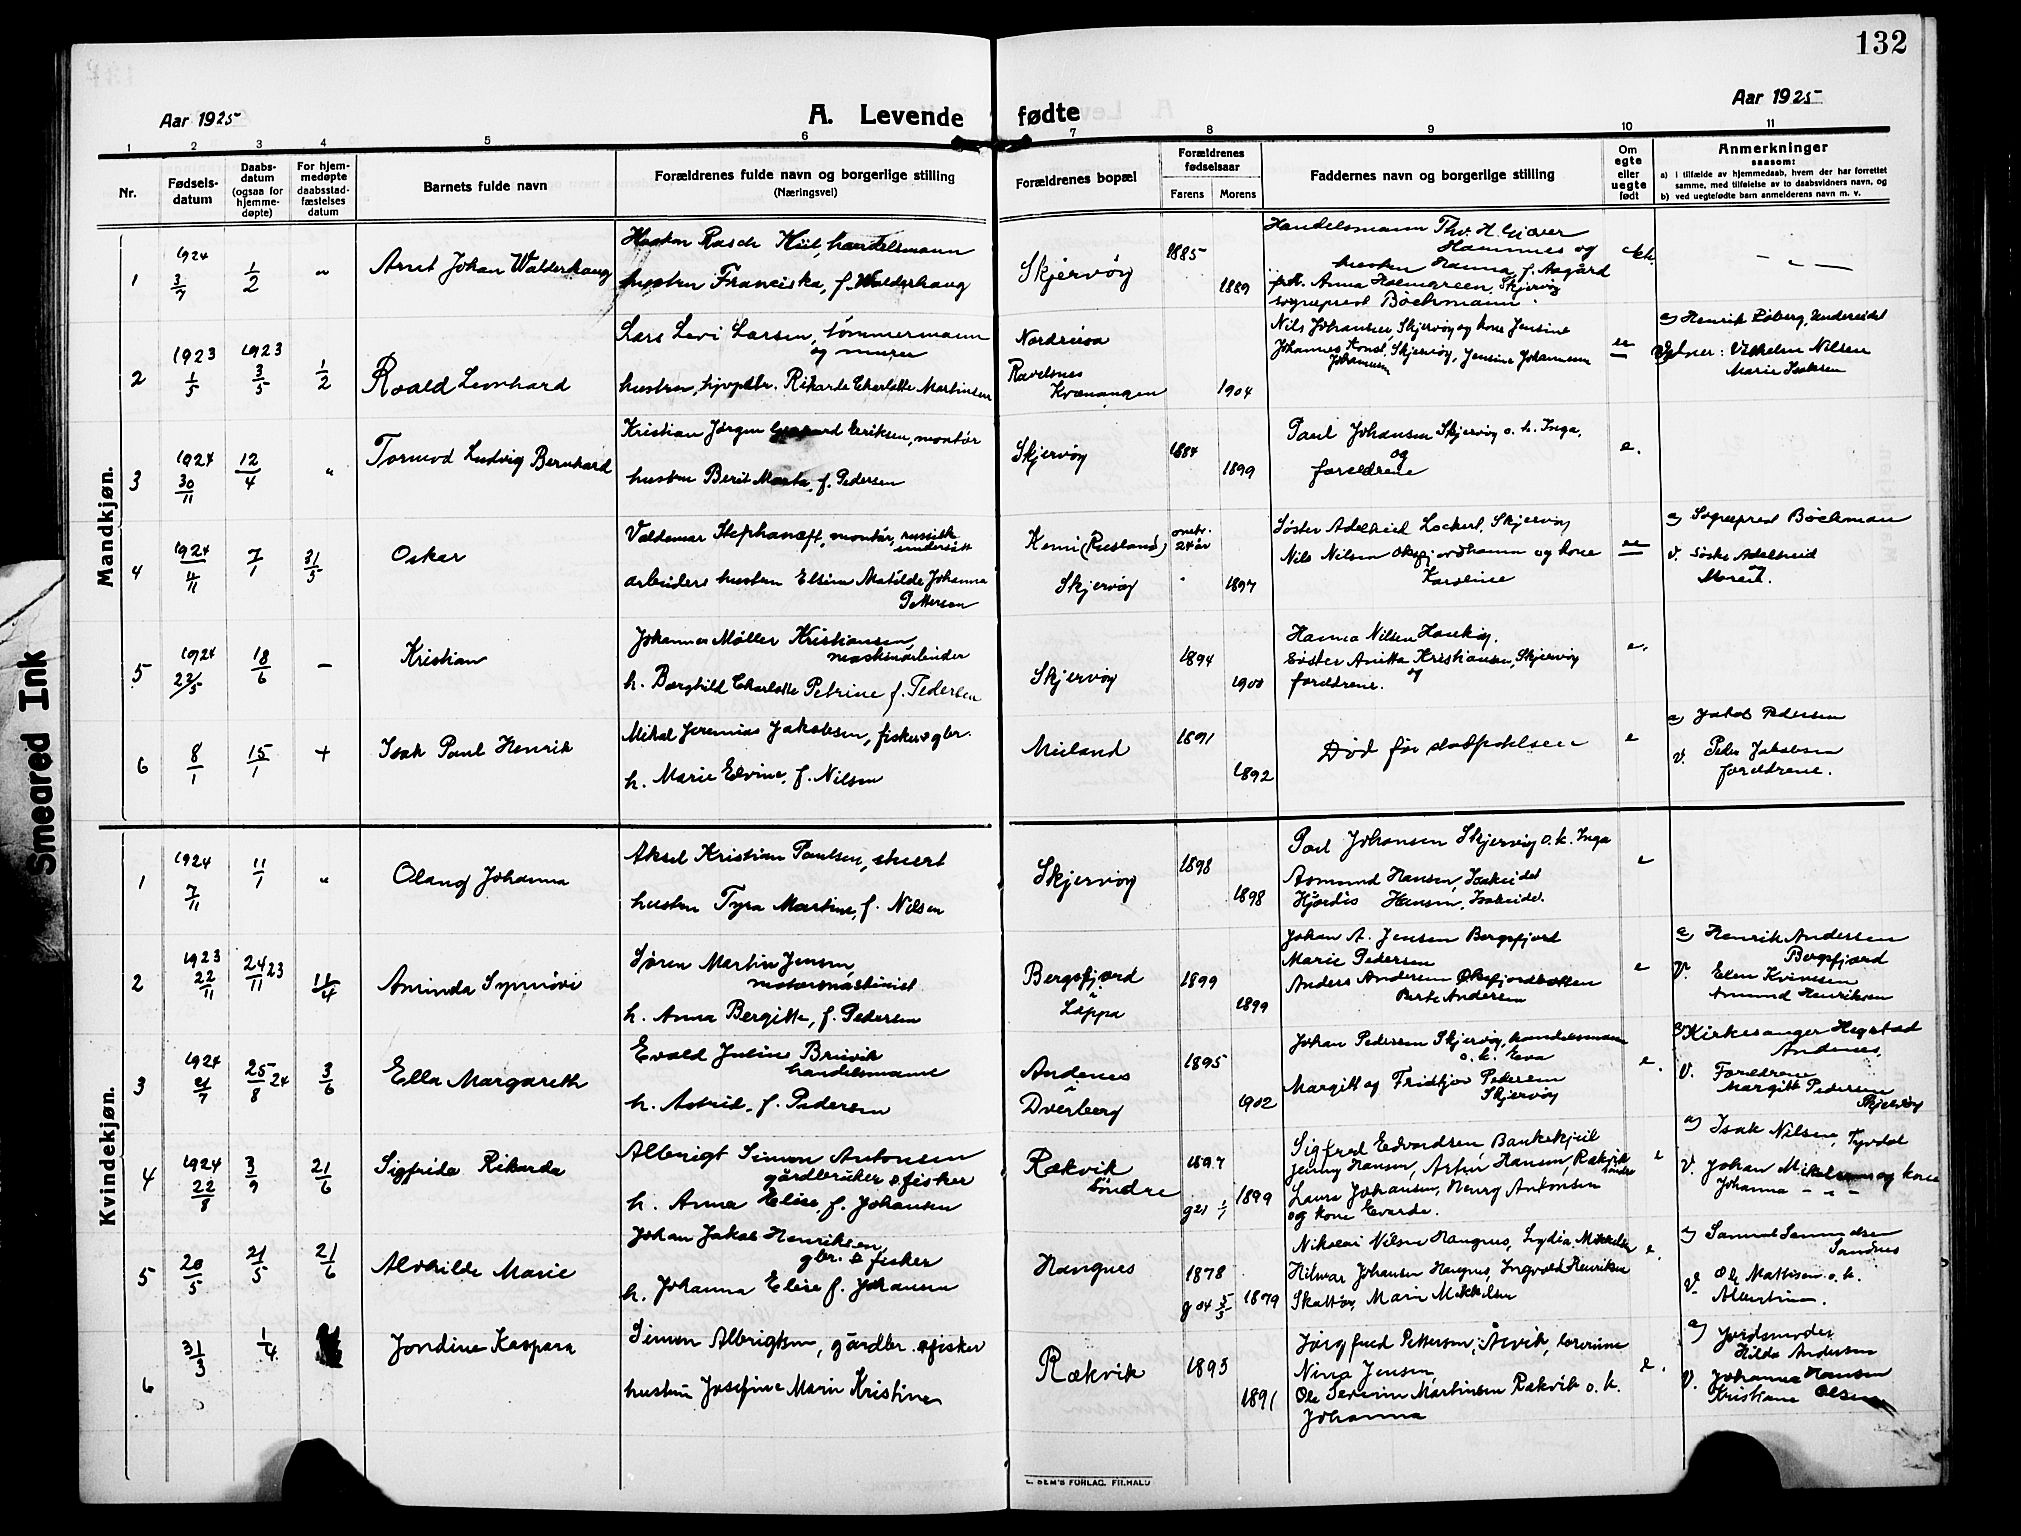 132
Aar 1925
A. Levende fødte
Aar 1925
1 2 3 4 5 6 7 8 9 10 11
Nr.
Fødsels-
datum
Daabs-
datum
(ogsaa for
hjemme-
døpte)
For hjem-
medøpte
daabsstad-
fæstelses
datum
Barnets fulde navn
Forældrenes fulde navn og borgerlige stilling
(Næringsvei)
Forældrenes bopæl
Forældrenes
fødselsaar
Farens Morens
Faddernes navn og borgerlige stilling
Om
egte
eller
uegte
født
Anmerkninger
saasom:
a) i tilfælde av hjemmedaab, hvem der har forrettet
samme, med tilføielse av to daabsvidners navn, og
b) ved uegtefødte barn anmelderens navn m. v.
Mandkjøn.
1
1924
3/7
1/2
"
Arnt Johan Walderhaug
Haakon Rasch Kiil, handelsmann
hustru Franciska, f. Walderhaug
Skjervøy
1885
1889
Handelsmann Thv. H. Giæver
Hamnnes og
hustru Hanna, f. Aagård
frk. Anna Holmgreen, Skjervøy
sogneprest Bøckmann.
ekte
— " —
2
1923
1/5
1923
3/5
1/2
Roald Leonhard
Lars Levi Larsen, tømmermann
og murer
hustru, Rikarde Charlotte Martinsen
Nordreisa
Ravelsnes
Kvænangen
1904
Nils Johansen, Skjervøy og kone Jensine
Johannes Konst. Skjervøy, Jensine Johannesen
Johannesen
ue
a) Henrik Røberg,
Vidner: Vilhelm Nilsen
Marie Isaksen
3
1924
30/11
12/4
"
Tormod Ludvig Bernhard
Kristian Jørgen Eriksen, montør
hustru Berit Marta, f. Pedersen
Skjervøy
1884
1899
Paul Johansen Skjervøy o. k. Inga,
og
forældrene
e.
4
1924
4/11
7/1
31/5
Oskar
Valdemar montør, russisk
undersått
arbeiders hustru Elsine Matilde Johanna
Pettersen
Kemi (Rusland)
Skjervøy
omtr.
24 år
"
1897
Søster Adelheid Lockert, Skjervøy
Nils Nilsen og kone
Karoline
ue
a) Sogneprest Bøckman
v. Søster Adelheid
og
Moren.
5
1924
22/5
18/6
—
Kristian
Johannes Møller Kristiansen,
maskinarbeider
h. Borghild Charlotte Petrine f. Pedersen
Skjervøy
1894
1900
Hanna Nilsen Haukøy.
Søster Anitta Kristiansen, Skjervøy
og
forældrene.
e.
6
8/1
15/1
+
Isak Paul Henrik
Mikal Jeremias Jakobsen, fisker o gbr.
h. Marie Elvine, f. Nilsen
Meiland
1891
1892
Død før stadfæstelsen
e
a) Jakob Pedersen
v. Peder Jakobsen
forældrene.
Kvindekjøn.
1
1924
7/11
11/1
"
Olaug Johanna
Aksel Kristian Paulsen, stuert
hustru Tyra Martine, f. Nilsen
Skjervøy
1898
1898
Paul Johansen Skjervøy o. k. Inga
Asmund Hansen, Isakeidet
Hjørdis Hansen, Isakeidet.
e
2
1923
22/11
24/11 23
11/4
Aminda Synnøvi
Søren Martin Jensen,
motormaskinist
h. Anna Bergitte, f. Pedersen
Bergsfjord
i
Loppa
1899
1899
Johan A. Jensen Bergsfjord
Marie Pedersen
Anders Andersen Oksfjordbotten
Berte Andersen
e
a) Henrik Andersen
Bergsfjord
V. Elen Kvinesen
Amund Henriksen
3
1924
2/7
25/8 24
3/6
Ella Margareth
Evald Julius Breivik
handelsmann
h. Astrid, f. Pedersen
Andenes
i
Dverberg
1895
1902
Johan Pedersen Skjervøy, handelsmann
o. k. Eva
Margitt og Fridtjov Pedersen
Skjervøy
e.
a) Kirkesanger Hegstad
Andenes,
V. Forældrene
Margitt Pedersen
Skjervøy
4
1924
22/8
3/9
21/6
Sigfrida Rikarda
Albrigt Simon Antonsen
gårdbruker o fisker
h. Anna Elise, f. Johansen
Rækvik
søndre
1897
g 21 1/7
1899
Sigfred Edvardsen, Bankekjeil
Jenny Hansen, Artur Hansen, Rækvik
søndre
Laura Johansen, Henry Antonsen
og kone Evarda.
e
a) Isak Nilsen, Tyvdal
V. Johan Mikelsen og kone
Johanna — " —
5
20/5
21/5
21/6
Alvhilde Marie
Johan Jakob Henriksen,
gbr. o fisker
h. Johanna Elise f. Johansen
Hangnes
1878
g 04 5/5
1879
Nikolai Nilsen Hangnes, Lydia Mikkelsen
Hilmar Johansen Hangnes, Ingvald Henriksen
Skattør, Marie Mikkelsen
e.
a) Samuel Samuelsen
Sandnes
V. Ole Mattisen o. k.
Albertine.
6
31/3
1/4
Jondine Kaspara
Simon Albrigtsen, gårdbr. o fisker
hustru Josefine Marie Kristine
Rækvik
1893
1891
Jørgfred Pettersen, Årvik, lærerinne
Nina Jensen,
Ole Severin Martinsen Rækvik o. k.
Johanna
e.
a) Jordmoder
Hilda Andersen
V. Johanna Hansen
Kristiane Olsen
Smeared Ink
SEM'S FORLAG. FR.HALD